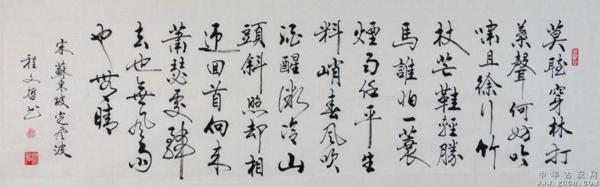 莫聽穿林打
葉聲何妨吟
嘯且徐行竹
杖芒鞋輕勝
馬誰怕一蓑
煙雨任平生
料峭春風吹
酒醒微冷山
頭斜照却相
迎回首向來
蕭瑟處歸
去也無風雨
也無晴
宋蘇東坡定風波
程文
中华古玩网
www.gucn.com